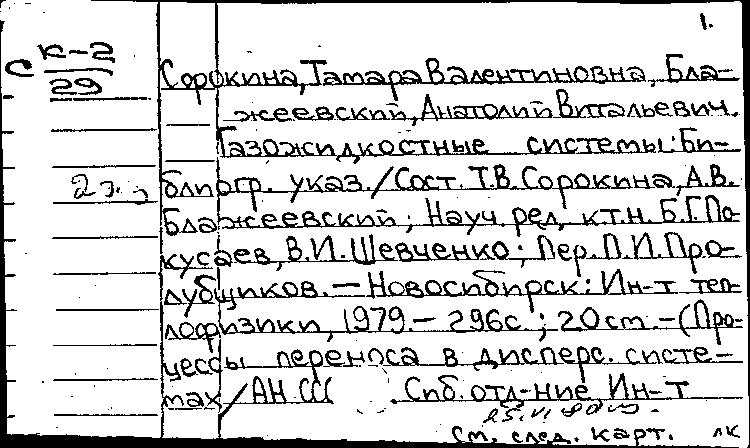 1.
С К-2
29
Сорокина, Тамара Валентиновна, Бла-
жеевский, Анатолий Витальевич.
Газожидкостные системы: Би-
2 э. блиогр. указ./Сост. Т.В. Сорокина, А.В.
Блажеевский; Науч. ред. к.т.н. Б.Г. По-
кусаев, В.И. Шевченко; Пер. П.И. Про-
лубщиков. — Новосибирск: Ин-т теп-
лофизики, 1979. — 296с.; 20 cm. — (Про-
цессы переноса в дисперс. систе-
мах / АН ССС . Сиб. отд-ние. Ин-т
См. след. карт. лк